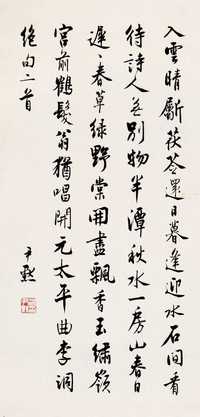 入雲晴斸茯苓還日暮逢迎水石間看
待詩人無別物半潭秋水一房山春日
遲〻春草綠野棠開盡飄香玉繡嶺
宮前鶴髮翁猶唱開元太平曲李洞
絕句二首
尹默